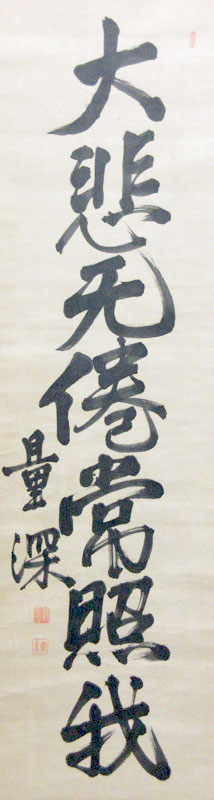 大悲无倦常照我
量深